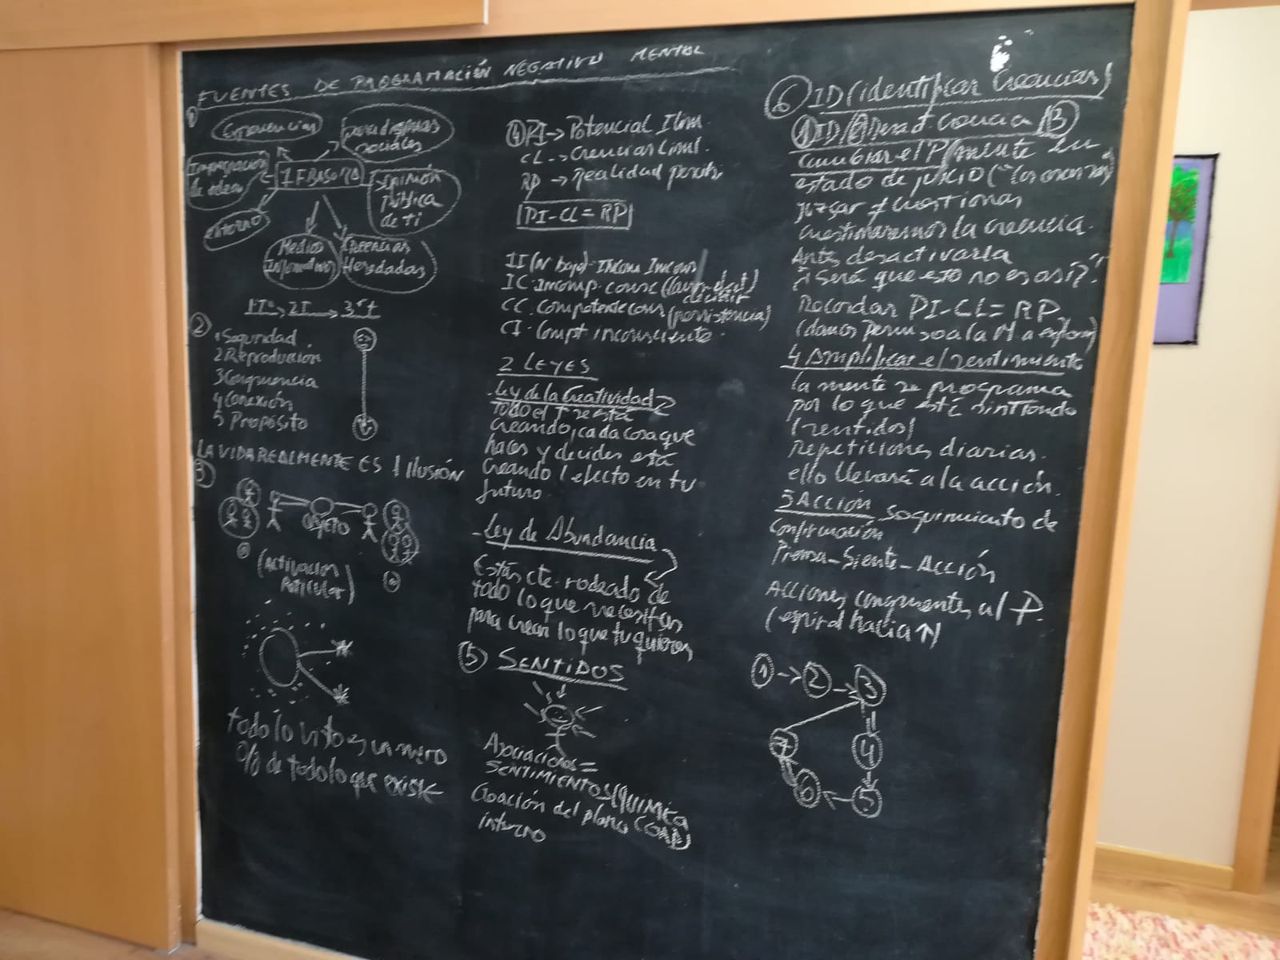 FUENTES DE PROGRAMACIÓN NEGATIVO MENTAL
1
Creencias
paradigmas
sociales
de ideas
entorno
Opinión
pública
de ti
Medios
Informativos
Creencias
Heredadas
②
1 Seguridad
2 Reproducción
3 Congruencia
4 Conexión
5 Propósito
LA VIDA REALMENTE ES 1 ILUSIÓN
③
OBJETO
(Activación
Reticular)
todo lo visto es un mero
% de todo lo que existe
④ PI → Potencial Ilim
CL → Creencias Limi.
RP → Realidad
PI-CL = RP
II (N bajo)
IC
CC (persistencia)
CI inconsciente
2 LEYES
- Ley de la Creatividad
todo el T está
creando, cada cosa que
haces y decides está
creando 1 efecto en tu
futuro
- Ley de Abundancia
Estás cte rodeado de
todo lo que necesitas
para crear lo que tu quieres
⑤ SENTIDOS
Asociaciones =
SENTIMIENTOS/QUIMICA
Creación del plano
interno
⑥ ID (identificar Creencias)
Cambiar el P/mente en
estado de juicio
juzgar y cuestionar
cuestionaremos la creencia
Antes desactivarla
"¿Será que esto no es así?"
Recordar PI-CL = RP
4 Amplificar el sentimiento
la mente se programa
por lo que está sintiendo
(sentidos)
Repeticiones diarias
ello llevará a la acción
5 ACCIÓN seguimiento de
confirmación
Piensa-Siente-Acción
Acciones congruentes al P.
(espiral hacia ↑)
① → ② → ③
④
⑤
⑥
⑦